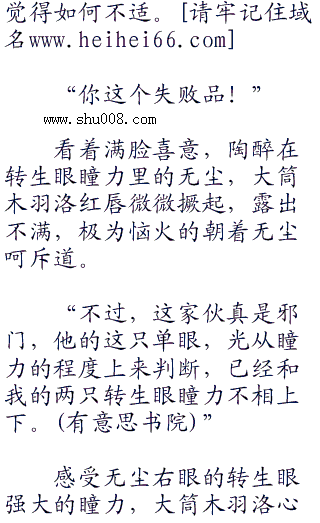 觉得如何不适。[请牢记住域
名www.heihei66.com]
“你这个失败品！”
www.shu008.com
看着满脸喜意，陶醉在
转生眼瞳力里的无尘，大筒
木羽洛红唇微微撅起，露出
不满，极为恼火的朝着无尘
呵斥道。
“不过，这家伙真是邪
门，他的这只单眼，光从瞳
力的程度上来判断，已经和
我的两只转生眼瞳力不相上
下。(有意思书院)”
感受无尘右眼的转生眼
强大的瞳力，大筒木羽洛心